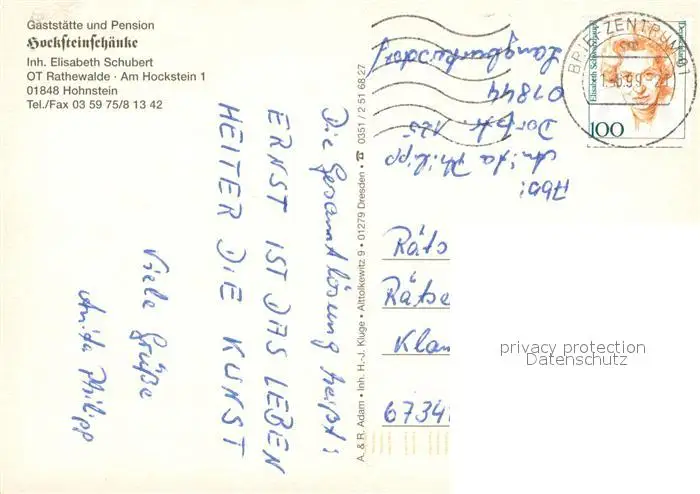 Gaststätte und Pension
Hocksteinschänke
Inh. Elisabeth Schubert
OT Rathewalde · Am Hockstein 1
01848 Hohnstein
Tel./Fax 03 59 75/8 13 42
Die Gesamtlösung heißt:
ERNST IST DAS LEBEN
HEITER DIE KUNST
Viele Grüße
Anita Philipp
A. & R. Adam · Inh. H.-J. Kluge · Alttolkewitz 9 · 01279 Dresden · ☎ 0351 / 2 51 68 27
Abs:
Anita Philipp
Dorfstr. 125
01844
Langburkersdorf
BRIEFZENTRUM 01
Elisabeth Schwarzhaupt
100
Räts
Rätse
Klau
6734
privacy protection
Datenschutz